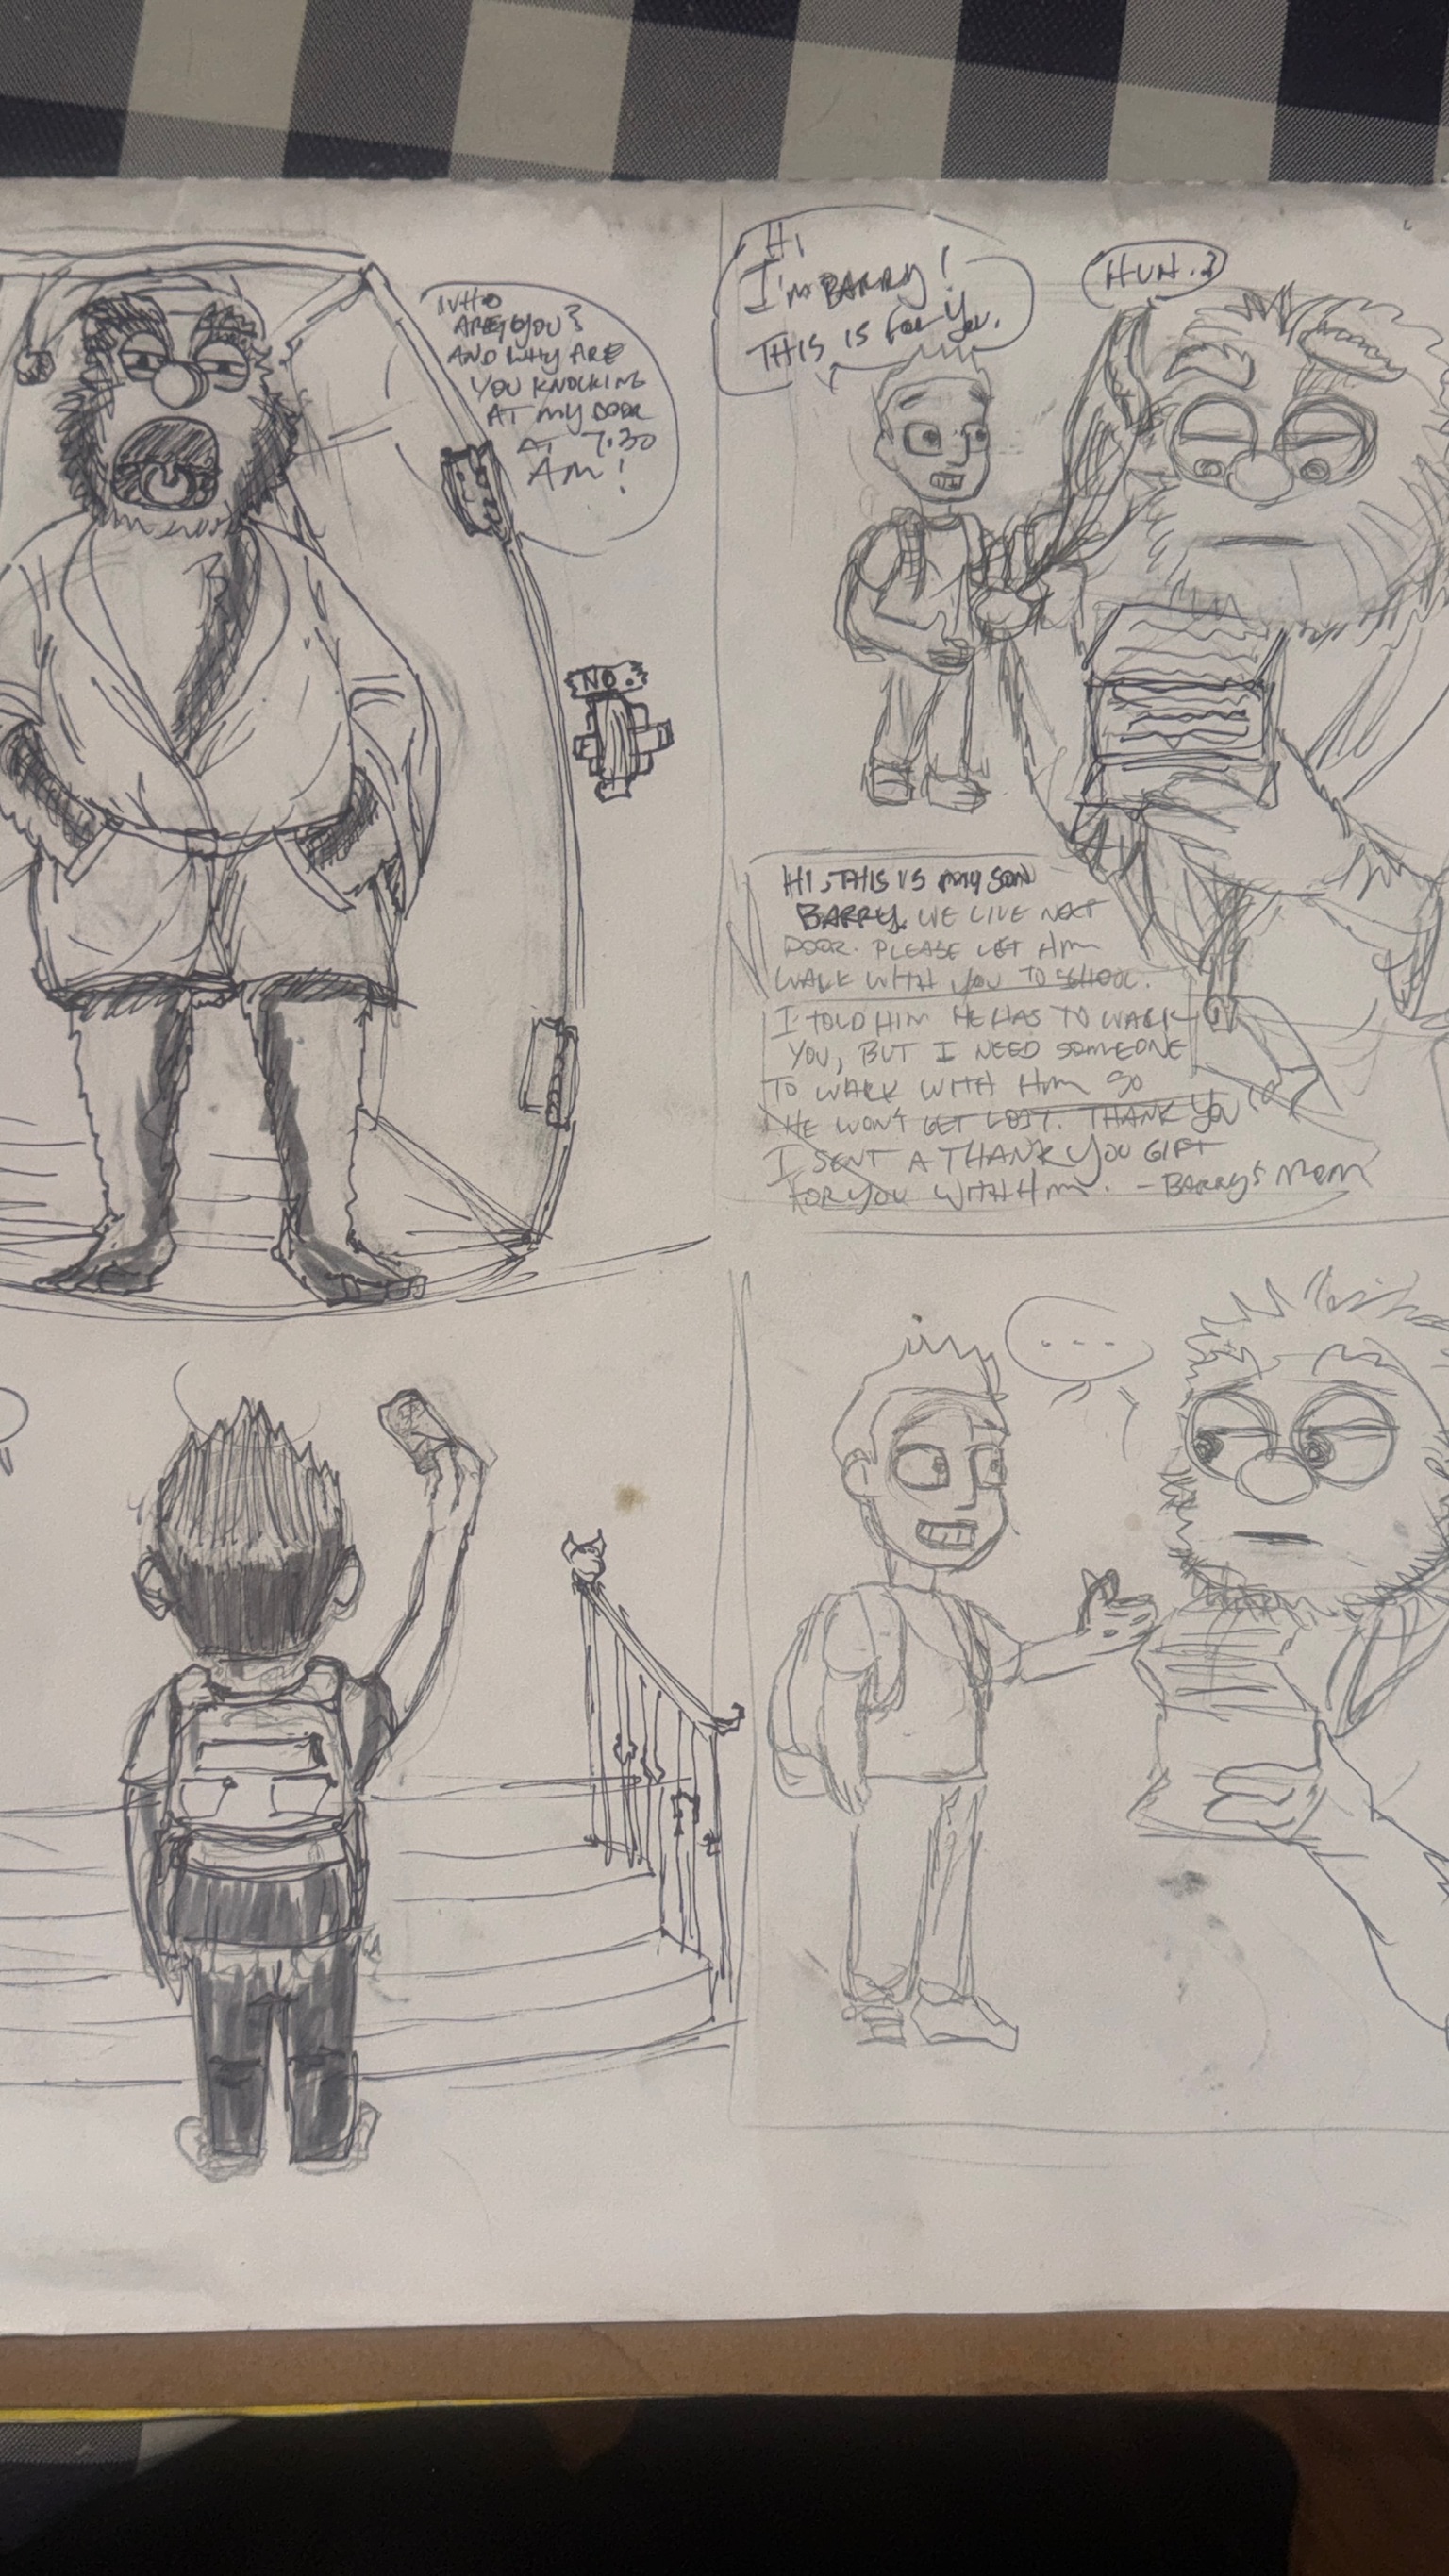 WHO
ARE YOU?
AND WHY ARE
YOU KNOCKING
AT MY DOOR
AT 7:30
AM!
NO.
HI
I'M BARRY!
THIS IS FOR YOU.
HUH.?
HI, THIS IS MY SON
BARRY. WE LIVE NEXT
DOOR. PLEASE LET HIM
WALK WITH YOU TO SCHOOL.
I TOLD HIM HE HAS TO WALK
YOU, BUT I NEED SOMEONE
TO WALK WITH HIM SO
HE WON'T GET LOST. THANK YOU
I SENT A THANK YOU GIFT
FOR YOU WITH HIM. - BARRY'S MOM
...